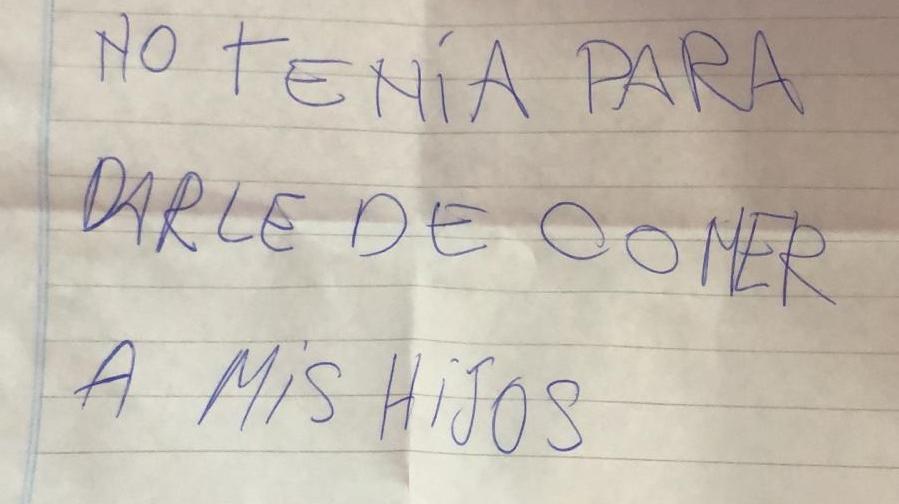 NO TENÍA PARA
DARLE DE COMER
A MiS HiJOS